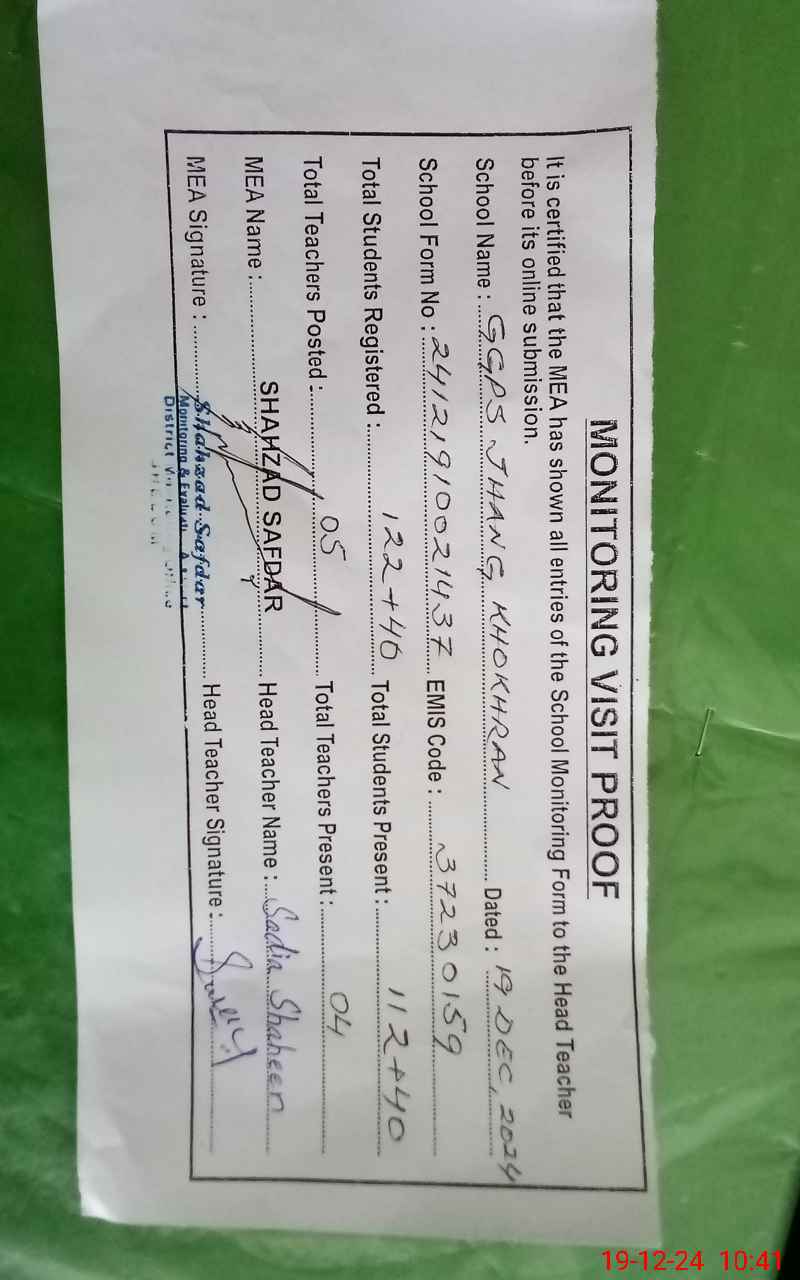 MONITORING VISIT PROOF
It is certified that the MEA has shown all entries of the School Monitoring Form to the Head Teacher
before its online submission.
School Name : GGPS JHANG KHOKHRAN Dated : 19 DEC, 2024
School Form No : 24121910021437 EMIS Code : 37230159
Total Students Registered : 122+40 Total Students Present : 112+40
Total Teachers Posted : 05 Total Teachers Present : 04
MEA Name : SHAHZAD SAFDAR Head Teacher Name : Sadia Shaheen
MEA Signature : Shahzad Safdar Head Teacher Signature :
Monitoring &
District
19-12-24 10:41